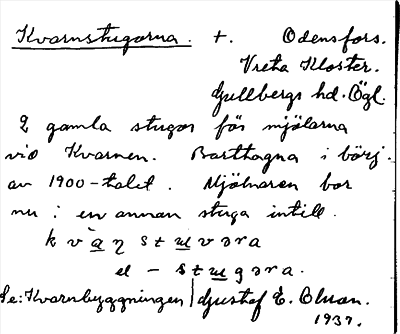 Kvarnstugorna. t. Odensfors.
Vreta Kloster.
Gullbergs hd. Ögl.
2 gamla stugor för mjölarna
vid Kvarnen. Borttagna i börj.
av 1900-talet. Mjölnaren bor
nu i en annan stuga intill.
kvaŋstuvəra
el - stugəra.
Se: Kvarnbyggningen | Gustaf E. Olsson.
1937.